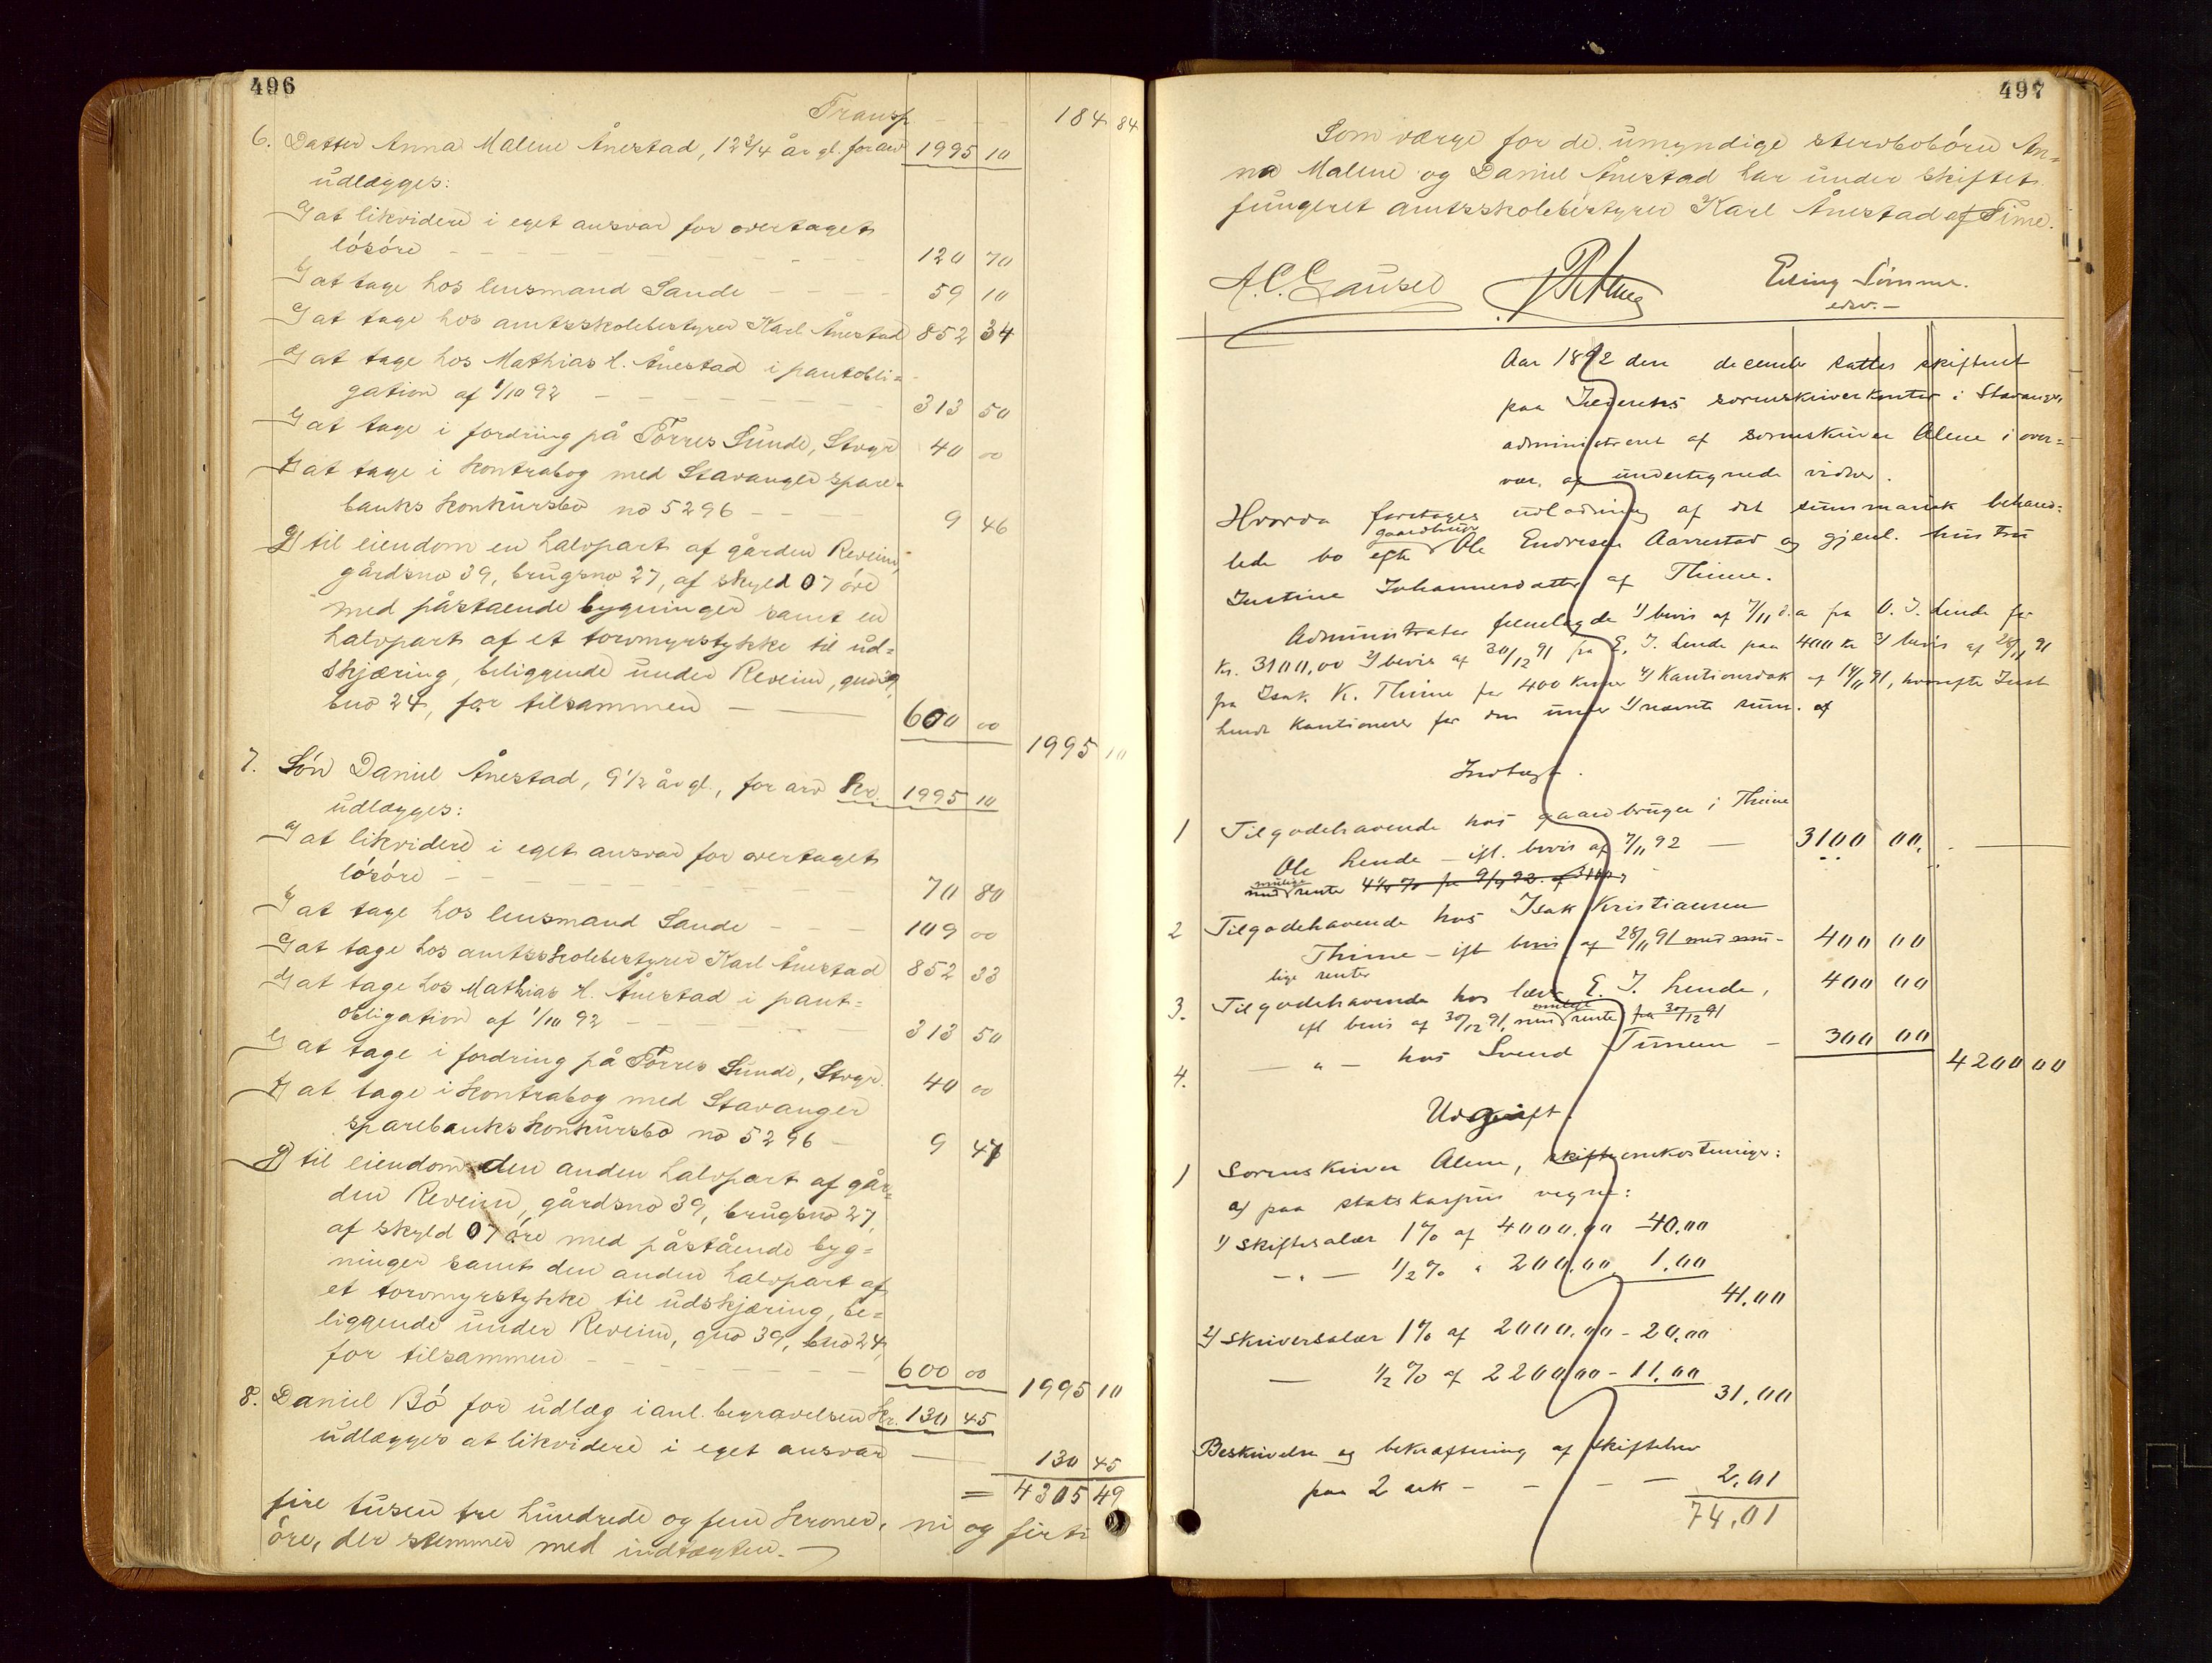 496
Transp - - - 184 84
6. Datter Anna Malene Ånestad, 12 3/4 år gl. for arv 1995 10
udlægges:
a) at likvidere i eget ansvar for overtaget
lösöre - - - - - - - - - - 120 70
b) at tage hos lensmand Sande - - - 59 10
c) at tage hos amtsskolebestyrer Karl Ånestad 852 34
d) at tage hos Mathias H. Ånestad i pantobli=
gation af 1/10 92 - - - - - - 313 50
e) at tage i fordring på Törres Sunde, Stvgr 40 00
f) at tage i kontrabog med Stavanger spare=
banks konkursbo no 5296 - - - - 9 46
g) til eiendom en halvpart af gården Reveim,
gårdsno 39, brugsno 27, af skyld 07 öre
med påstaende bygninger samt en
halvpart af et torvmyrstykke til ud=
skjæring, beliggende under Reveim, gno 39,
bno 24, for tilsammen - - 600 00
1995 10
7. Sön Daniel Ånestad, 9 1/2 år gl., for arv Kr. 1995 10
udlægges:
a) at likvidere i eget ansvar for overtaget
lösöre - - - - - - - - - 70 80
b) at tage hos lensmand Sande - - - 109 00
c) at tage hos amtsskolebestyrer Karl Ånestad 852 33
d) at tage hos Mathias H. Ånestad i pant=
obligation af 1/10 92 - - - - - 313 50
e) at tage i fordring på Törres Sunde, Stvgr. 40 00
f) at tage i kontrabog med Stavanger
sparebanks konkursbo no 5296 - 9 47
g) til eiendom den anden halvpart af går=
den Reveim, gårdsno 39, brugsno 27,
af skyld 07 öre med påstående byg=
ninger samt den anden halvpart af
et torvmyrstykke til udskjæring, be=
liggende under Reveim, gno 39, bno 24,
for tilsammen - - - - - - - 600 00
1995 10
8. Daniel Bö for udlæg i anl. begravelsen Kr. 130 45
udlægges at likvidere i eget ansvar - 130 45
= 4305 49
fire tusen tre hundrede og fem kroner, ni og firti
öre, der stemmer med indtægten. -
497
Som værge for de umyndige stervbobörn An=
na Malene og Daniel Ånestad har under skiftet
fungeret amtsskolebestyrer Karl Ånestad af Time.
Erling Sömme.
edsv. -
Aar 1892 den decembe sattes skifteret
paa Jæderens sorenskriverkontor i Stavanger
administreret af sorenskriver Alene i over=
vær. af undertegnede vidner.
Hvorda foretages udlodning af det summarisk behand=
lede bo efte gaardbruger Ole Endresen Aarrestad og gjenl. hustru
Justine Johannesdatter af Thime.
Administrator fremlagde 1) bevis af 7/11 d.a fra O. J. Lende for
kr. 3100,00 2) bevis af 30/12 91 fra E. J. Lende paa 400 kr 3) bevis af 28/11 91
fra Isak K. Thime for 400 kroner 4) Kautionsdok af 14/11 91, hvorefte Just
Lende kautionerer for den under 1) nævnte sum. af
Indtægt.
1 Tilgodehavende hos gaardbruger i Thime
Ole Lende - ifl. bevis af 7/11 92 - 3100 00.
med mulige renter 4 1/2 % fra 9/4 92. af 3100,
2 Tilgodehavende hos Isak Kristiansen
Thime - ifl bevis af 28/11 91 med mu- 400 00
lige renter
3. Tilgodehavende hos E. J. Lende, 400 00
ifl bevis af 30/12 91, med mulige rente fra 30/12 91
4. - " - hos Svend Timen - 300 00
4200 00
Udgift.
1 Sorenskriver Alene, skifteomkostninger:
a) paa statskassens vegne:
1) skiftesalær 1% af 4000,00 - 40.00
- " - 1/2 % " 200,00, 1,00
41,00
2) skriversalær 1% af 2000,00 - 20,00
- 1/2 % af 2200,00 - 11,00
31,00
Beskrivelse og bekræftning af skiftebrev
paa 2 ark - - - - 2,01
74,01